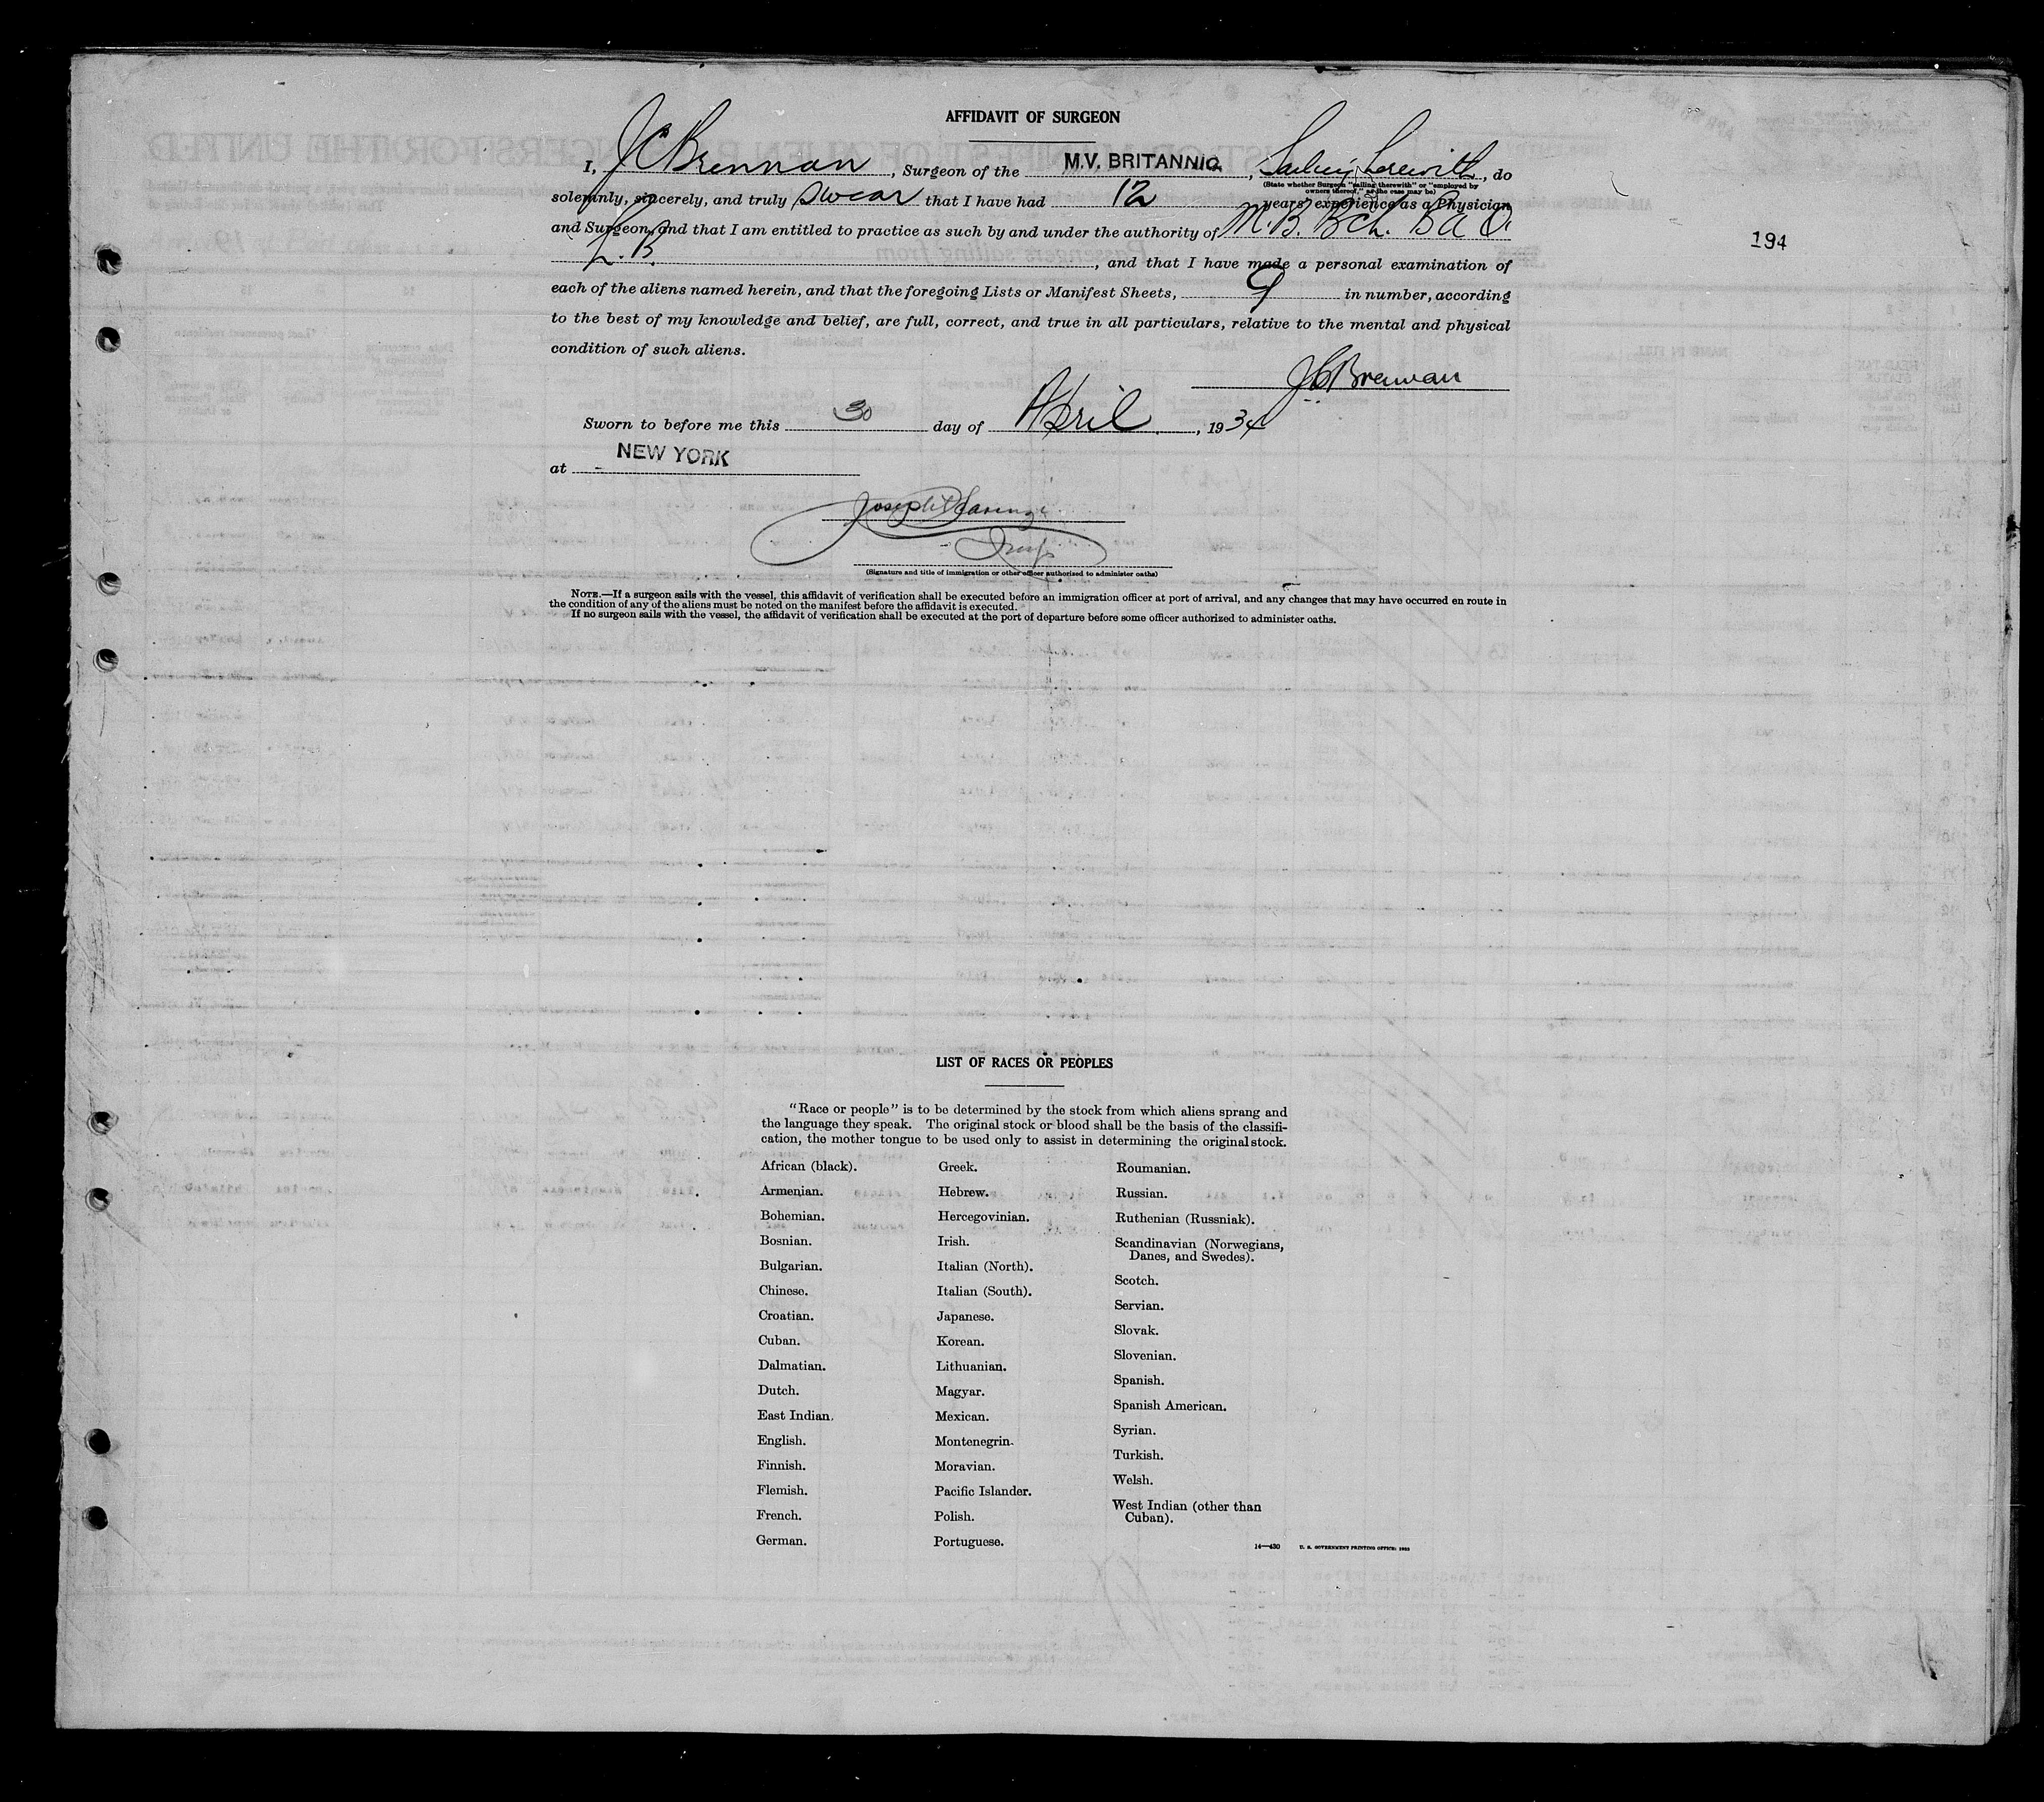 AFFIDAVIT OF SURGEON
I, J C Brennan, Surgeon of the M.V. BRITANNIC, Sailing therewith, do
(State whether Surgeon "sailing therewith" or "employed by
owners thereof," as the case may be)
solemnly, sincerely, and truly swear that I have had 12 years' experience as a Physician
and Surgeon, and that I am entitled to practice as such by and under the authority of M.B. Bch. B A O.
, and that I have made a personal examination of
each of the aliens named herein, and that the foregoing Lists or Manifest Sheets, 9 in number, according
to the best of my knowledge and belief, are full, correct, and true in all particulars, relative to the mental and physical
condition of such aliens.
J C Brennan
Sworn to before me this 30 day of April, 1934
at NEW YORK
Joseph
(Signature and title of immigration or other officer authorized to administer oaths)
NOTE.—If a surgeon sails with the vessel, this affidavit of verification shall be executed before an immigration officer at port of arrival, and any changes that may have occurred en route in
the condition of any of the aliens must be noted on the manifest before the affidavit is executed.
If no surgeon sails with the vessel, the affidavit of verification shall be executed at the port of departure before some officer authorized to administer oaths.
194
LIST OF RACES OR PEOPLES
"Race or people" is to be determined by the stock from which aliens sprang and
the language they speak. The original stock or blood shall be the basis of the classifi-
cation, the mother tongue to be used only to assist in determining the original stock.
African (black).
Armenian.
Bohemian.
Bosnian.
Bulgarian.
Chinese.
Croatian.
Cuban.
Dalmatian.
Dutch.
East Indian.
English.
Finnish.
Flemish.
French.
German.
Greek.
Hebrew.
Hercegovinian.
Irish.
Italian (North).
Italian (South).
Japanese.
Korean.
Lithuanian.
Magyar.
Mexican.
Montenegrin.
Moravian.
Pacific Islander.
Polish.
Portuguese.
Roumanian.
Russian.
Ruthenian (Russniak).
Scandinavian (Norwegians,
Danes, and Swedes).
Scotch.
Servian.
Slovak.
Slovenian.
Spanish.
Spanish American.
Syrian.
Turkish.
Welsh.
West Indian (other than
Cuban).
14—430 U. S. GOVERNMENT PRINTING OFFICE: